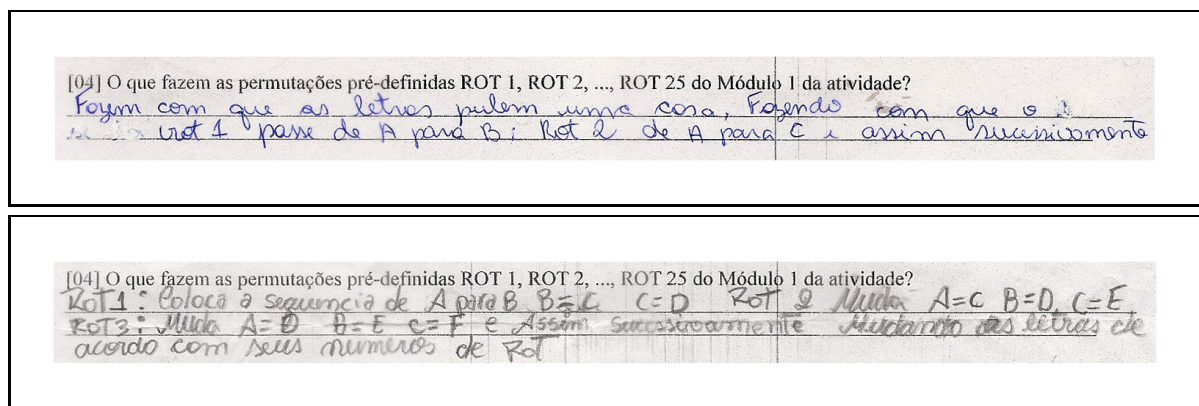 [04] O que fazem as permutações pré-definidas ROT 1, ROT 2, ..., ROT 25 do Módulo 1 da atividade?
Fazem com que as letras pulem uma casa, Fazendo com que o
rot 1 passe de A para B; Rot 2 de A para C e assim sucessivamente
[04] O que fazem as permutações pré-definidas ROT 1, ROT 2, ..., ROT 25 do Módulo 1 da atividade?
ROT 1: Coloca a sequencia de A para B B=C C=D ROT 2 Muda A=C B=D C=E
ROT3: Muda A=D B=E C=F e Assim sucessivamente Mudando as letras de
acordo com seus numeros de ROT